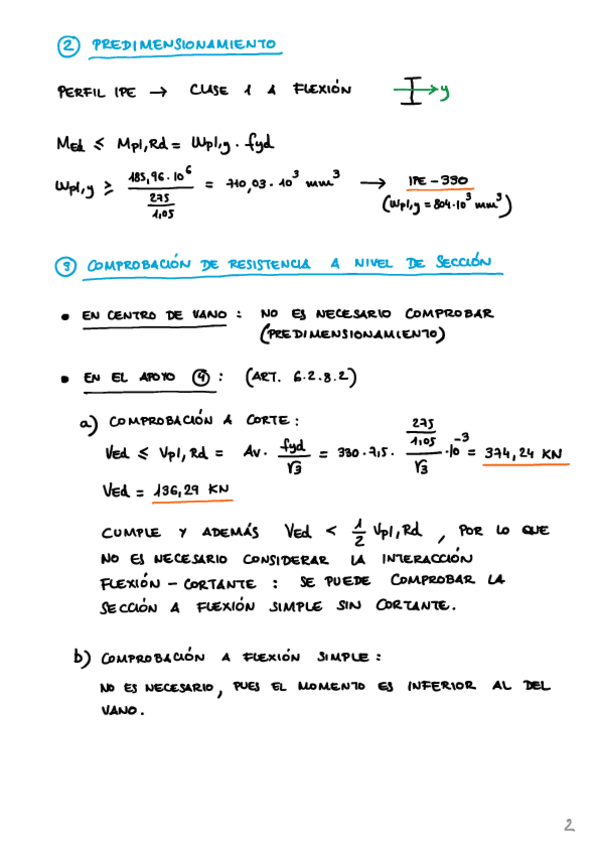 ② PREDIMENSIONAMIENTO
PERFIL IPE → CLASE 1 A FLEXIÓN y
MEd ≤ Mpl,Rd = Wpl,y · fyd
Wpl,y ≥ 185,96·10⁶ / (275/1,05) = 710,03·10³ mm³ → IPE-330
(Wpl,y = 804·10³ mm³)
③ COMPROBACIÓN DE RESISTENCIA A NIVEL DE SECCIÓN
• EN CENTRO DE VANO: NO ES NECESARIO COMPROBAR
(PREDIMENSIONAMIENTO)
• EN EL APOYO ④: (ART. 6.2.8.2)
a) COMPROBACIÓN A CORTE:
VEd ≤ Vpl,Rd = Av · fyd/√3 = 330·7,5· (275/1,05)/√3 ·10⁻³ = 374,24 KN
VEd = 136,29 KN
CUMPLE Y ADEMÁS VEd < 1/2 Vpl,Rd, POR LO QUE
NO ES NECESARIO CONSIDERAR LA INTERACCIÓN
FLEXIÓN - CORTANTE: SE PUEDE COMPROBAR LA
SECCIÓN A FLEXIÓN SIMPLE SIN CORTANTE.
b) COMPROBACIÓN A FLEXIÓN SIMPLE:
NO ES NECESARIO, PUES EL MOMENTO ES INFERIOR AL DEL
VANO.
2